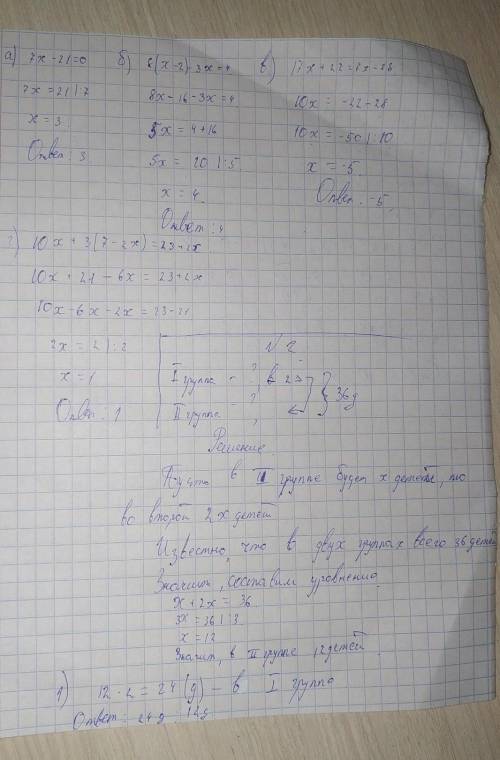 а) 7x - 21 = 0
7x = 21 | : 7
x = 3
Ответ: 3
б) 8(x-2) - 3x = 4
8x - 16 - 3x = 4
5x = 4 + 16
5x = 20 | : 5
x = 4
Ответ: 4
в) 17x + 22 = 7x - 28
10x = -22 - 28
10x = -50 | : 10
x = -5
Ответ: -5
г) 10x + 3(7 - 2x) = 23 + 2x
10x + 21 - 6x = 23 + 2x
10x - 6x - 2x = 23 - 21
2x = 2 | : 2
x = 1
Ответ: 1
√2
I группа - ?, в 2
II группа - ?, 36 д
Решение
Пусть в II группе будет x детей, то
во второй 2x детей
Известно, что в двух группах всего 36 детей
Значит, составим уравнение
x + 2x = 36
3x = 36 | : 3
x = 12
Значит, в II группе 12 детей.
1) 12 · 2 = 24 (д) - в I группа
Ответ: 24д 12д